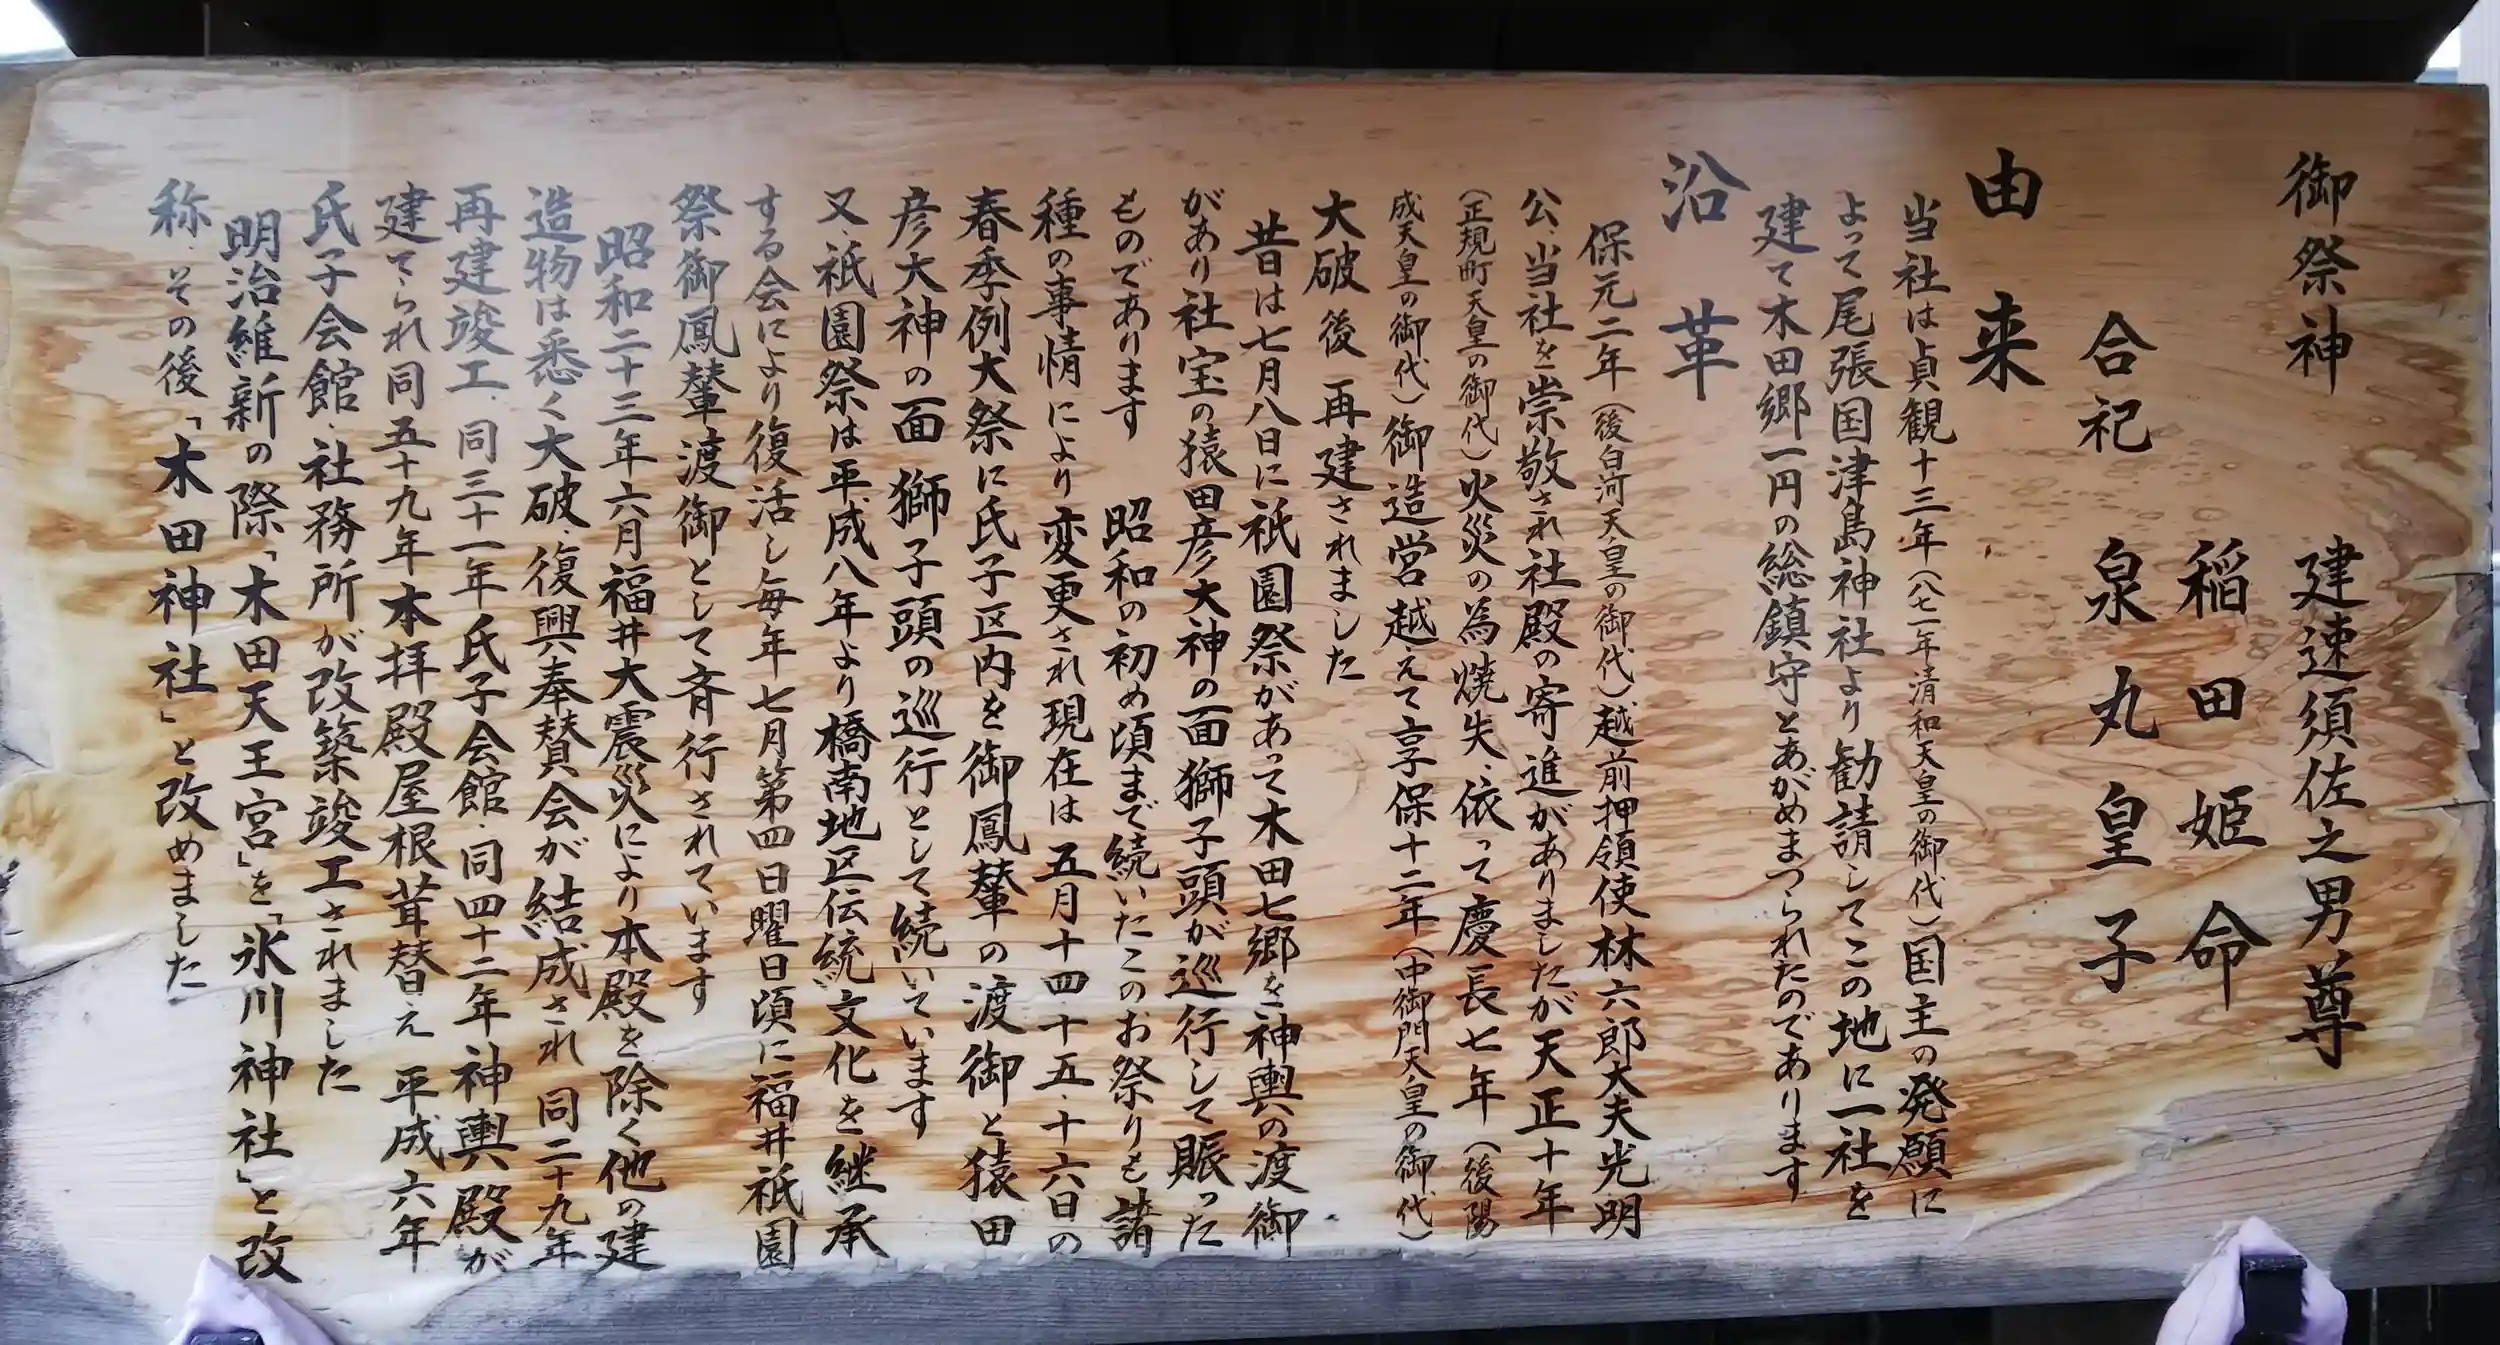 御祭神　建速須佐之男尊
稲田姫命
合祀　泉丸皇子
由来
当社は貞観十三年（八七一年清和天皇の御代）国主の発願に
よって尾張国津島神社より勧請してこの地に一社を
建て木田郷一円の総鎮守とあがめまつられたのであります
沿革
保元二年（後白河天皇の御代）越前押領使林六郎大夫光明
公、当社を崇敬され社殿の寄進がありましたが天正十年
（正規町天皇の御代）火災の為焼失、依って慶長七年（後陽
成天皇の御代）御造営越えて享保十二年（中御門天皇の御代）
大破後 再建されました
昔は七月八日に祇園祭があって木田七郷を神輿の渡御
があり社宝の猿田彦大神の面獅子頭が巡行して賑った
ものであります　昭和の初め頃まで続いたこのお祭りも諸
種の事情により変更され現在は五月十四・十五・十六日の
春季例大祭に氏子区内を御鳳輦の渡御と猿田
彦大神の面 獅子頭の巡行として続いています
又、祇園祭は平成八年より橋南地区伝統文化を継承
する会により復活し毎年七月第四日曜日頃に福井祇園
祭御鳳輦渡御として斉行されています
昭和二十三年六月福井大震災により本殿を除く他の建
造物は悉く大破、復興奉賛会が結成され 同二十九年
再建竣工、同三十一年氏子会館、同四十二年神輿殿が
建てられ同五十九年本拝殿屋根葺替え 平成六年
氏子会館、社務所が改築竣工されました
明治維新の際「木田天王宮」を「氷川神社」と改
称、その後「木田神社」と改めました